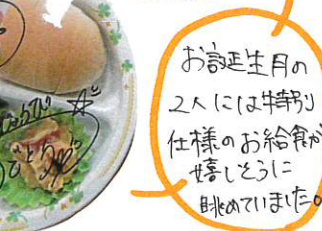 お誕生月の
2人には特別
仕様のお給食が
嬉しそうに
眺めていました。